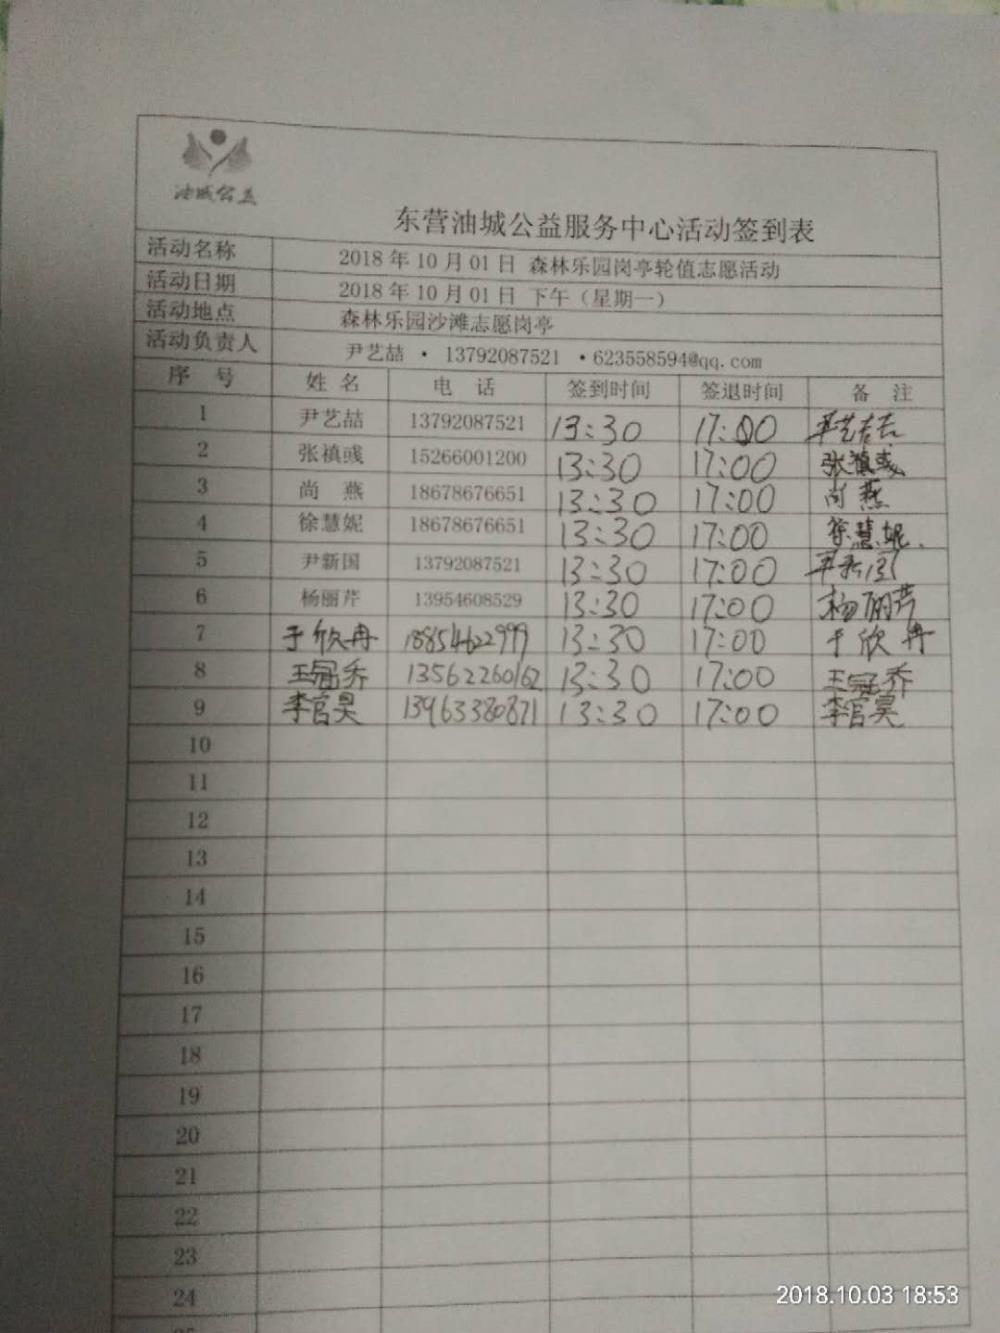 油城公益
东营油城公益服务中心活动签到表
活动名称 2018 年 10 月 01 日 森林乐园岗亭轮值志愿活动
活动日期 2018 年 10 月 01 日 下午（星期一）
活动地点 森林乐园沙滩志愿岗亭
活动负责人 尹艺喆 · 13792087521 ·623558594@qq.com
序 号 姓 名 电 话 签到时间 签退时间 备 注
1 尹艺喆 13792087521 13:30 17:00 尹艺喆
2 张禛彧 15266001200 13:30 17:00 张禛彧
3 尚 燕 18678676651 13:30 17:00 尚燕
4 徐慧妮 18678676651 13:30 17:00 徐慧妮.
5 尹新国 13792087521 13:30 17:00 尹新国
6 杨丽芹 13954608529 13:30 17:00 杨丽芹
7 于欣冉 18854622999 13:30 17:00 于欣冉
8 王冠乔 13562260162 13:30 17:00 王冠乔
9 李官昊 13963380871 13:30 17:00 李官昊
10
11
12
13
14
15
16
17
18
19
20
21
22
23
24
2018.10.03 18:53